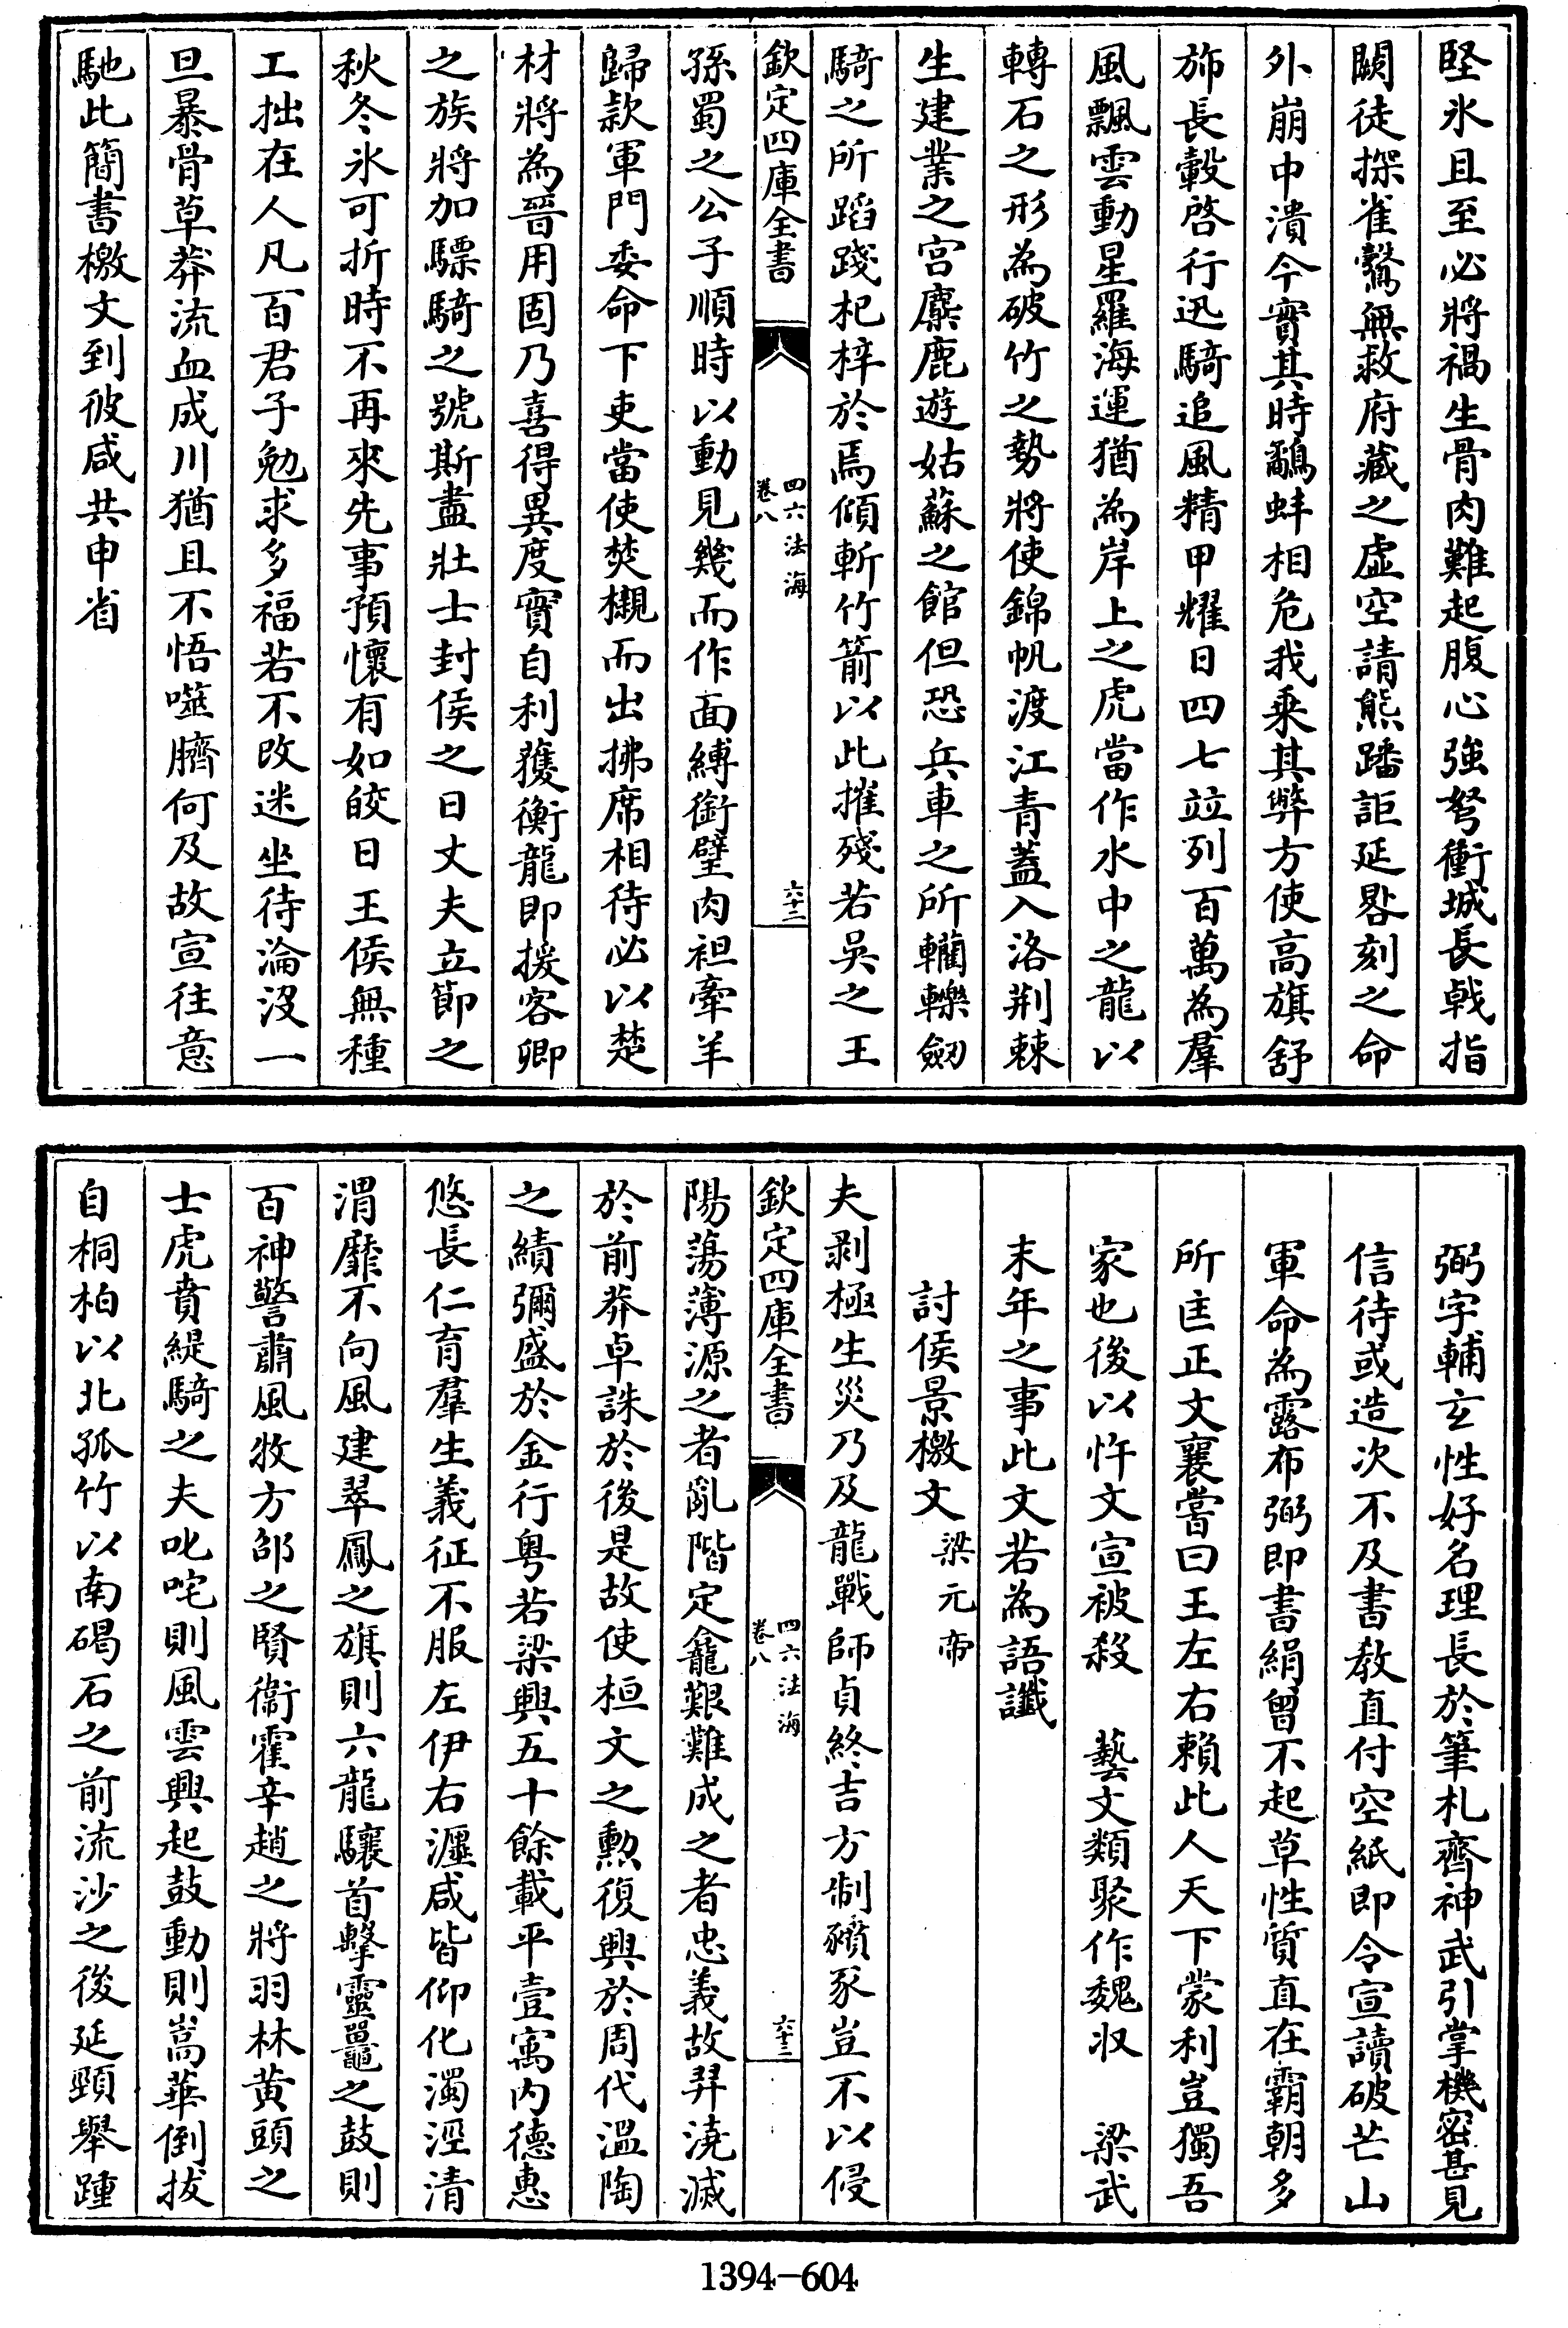 堅氷且至必將禍生骨肉難起腹心強弩衝城長戟指
闕徒探雀鷇無救府藏之虛空請熊蹯詎延晷刻之命
外崩中潰今實其時鷸蚌相危我乗其弊方使高旗舒
斾長轂啓行迅騎追風精甲耀日四七竝列百萬為羣
風飄雲動星羅海運猶為岸上之虎當作水中之龍以
轉石之形為破竹之勢將使錦帆渡江青蓋入洛荆棘
生建業之宮麋鹿遊姑蘇之館但恐兵車之所轥轢劒
騎之所蹈踐杞梓於焉傾斬竹箭以此摧殘若吳之王
欽定四庫全書
四六法海
卷八
六十二
孫蜀之公子順時以動見幾而作面縛銜璧肉袒牽羊
歸款軍門委命下吏當使焚櫬而出拂席相待必以楚
材將為晉用固乃喜得異度實自利獲衡龍即援客卿
之族將加驃騎之號斯盡壯士封侯之日丈夫立節之
秋冬氷可折時不再來先事預懷有如皎日王侯無種
工拙在人凡百君子勉求多福若不改迷坐待淪沒一
旦暴骨草莽流血成川猶且不悟噬臍何及故宣往意
馳此簡書檄文到彼咸共申省
弼字輔玄性好名理長於筆札齊神武引掌機密甚見
信待或造次不及書教直付空紙即令宣讀破芒山
軍命為露布弼即書絹曾不起草性質直在霸朝多
所匡正文襄嘗曰王左右賴此人天下蒙利豈獨吾
家也後以忤文宣被殺　藝文類聚作魏収　梁武
末年之事此文若為語讖
討侯景檄文　梁元帝
夫剥極生災乃及龍戰師貞終吉方制豶豕豈不以侵
欽定四庫全書
四六法海
卷八
六十三
陽蕩薄源之者亂階定龕艱難成之者忠義故羿澆滅
於前莽卓誅於後是故使桓文之勲復興於周代溫陶
之績彌盛於金行粤若梁興五十餘載平壹寓內德惠
悠長仁育羣生義征不服左伊右瀍咸皆仰化濁涇清
渭靡不向風建翠鳳之旗則六龍驤首擊靈鼉之鼓則
百神警肅風牧方邵之賢衞霍辛趙之將羽林黄頭之
士虎賁緹騎之夫叱咤則風雲興起鼓動則嵩華倒拔
自桐柏以北孤竹以南碣石之前流沙之後延頸舉踵
1394-604